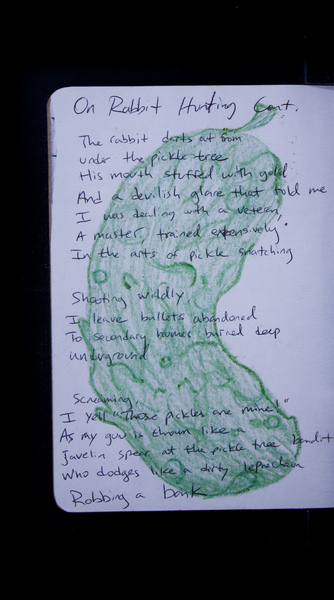 On Rabbit Hunting Cont.
The rabbit darts out from
under the pickle tree
His mouth stuffed with gold
And a devilish glare that told me
I was dealing with a veteran,
A master, trained expensively
In the arts of pickle snatching
Shooting wildly,
I leave bullets abandoned
To secondary homes burned deep
underground
Screaming,
I yell "Those pickles are mine!"
As my gun is thrown like a
javelin spear at the pickle tree bandit
Who dodges like a dirty leprechaun
Robbing a bank